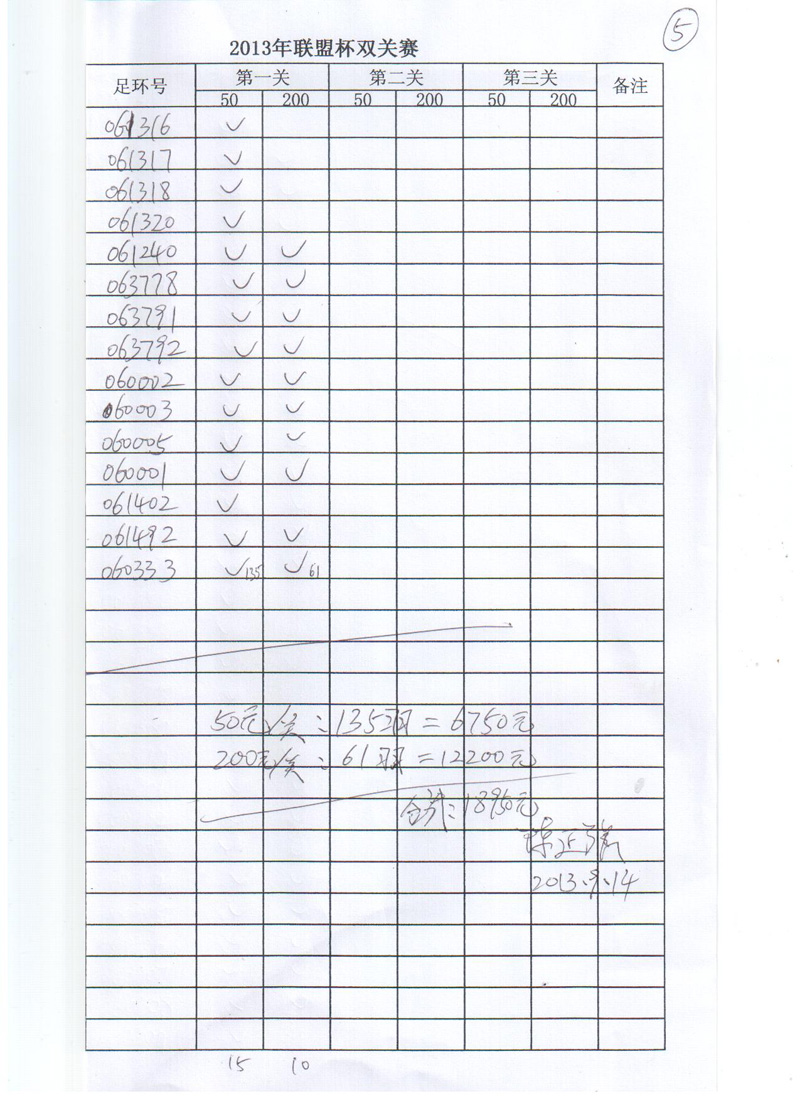 ⑤
2013年联盟杯双关赛
足环号 第一关 第二关 第三关 备注
50 200 50 200 50 200
061316 ✓
061317 ✓
061318 ✓
061320 ✓
061240 ✓ ✓
063778 ✓ ✓
063791 ✓ ✓
063792 ✓ ✓
060002 ✓ ✓
060003 ✓ ✓
060005 ✓ ✓
060001 ✓ ✓
061402 ✓
061492 ✓ ✓
060333 ✓135 ✓61
50元/关：135羽=6750元
200元/关：61羽=12200元
合共：18950元
2013.9.14
15 10